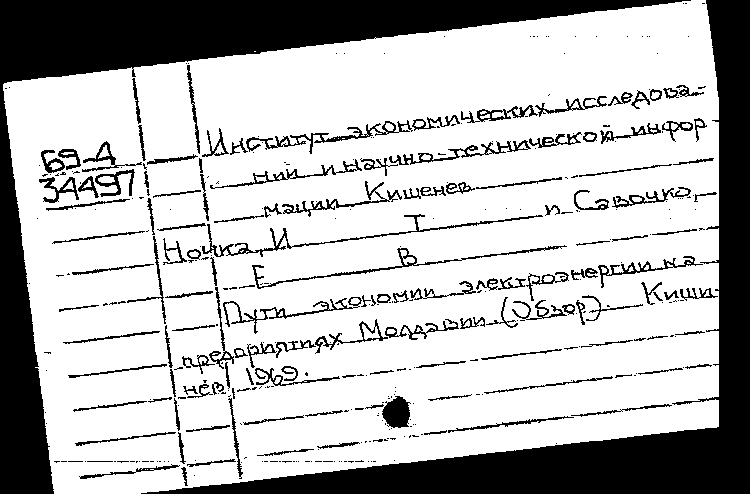 69-4
34497
Институт экономических исследова-
ний и научно-технической инфор-
мации Кишенев
Ночка, И Т и Савочко,
Е В
Пути экономии электроэнергии на
предприятиях Молдавии. (Обзор). Киши-
нев, 1969.